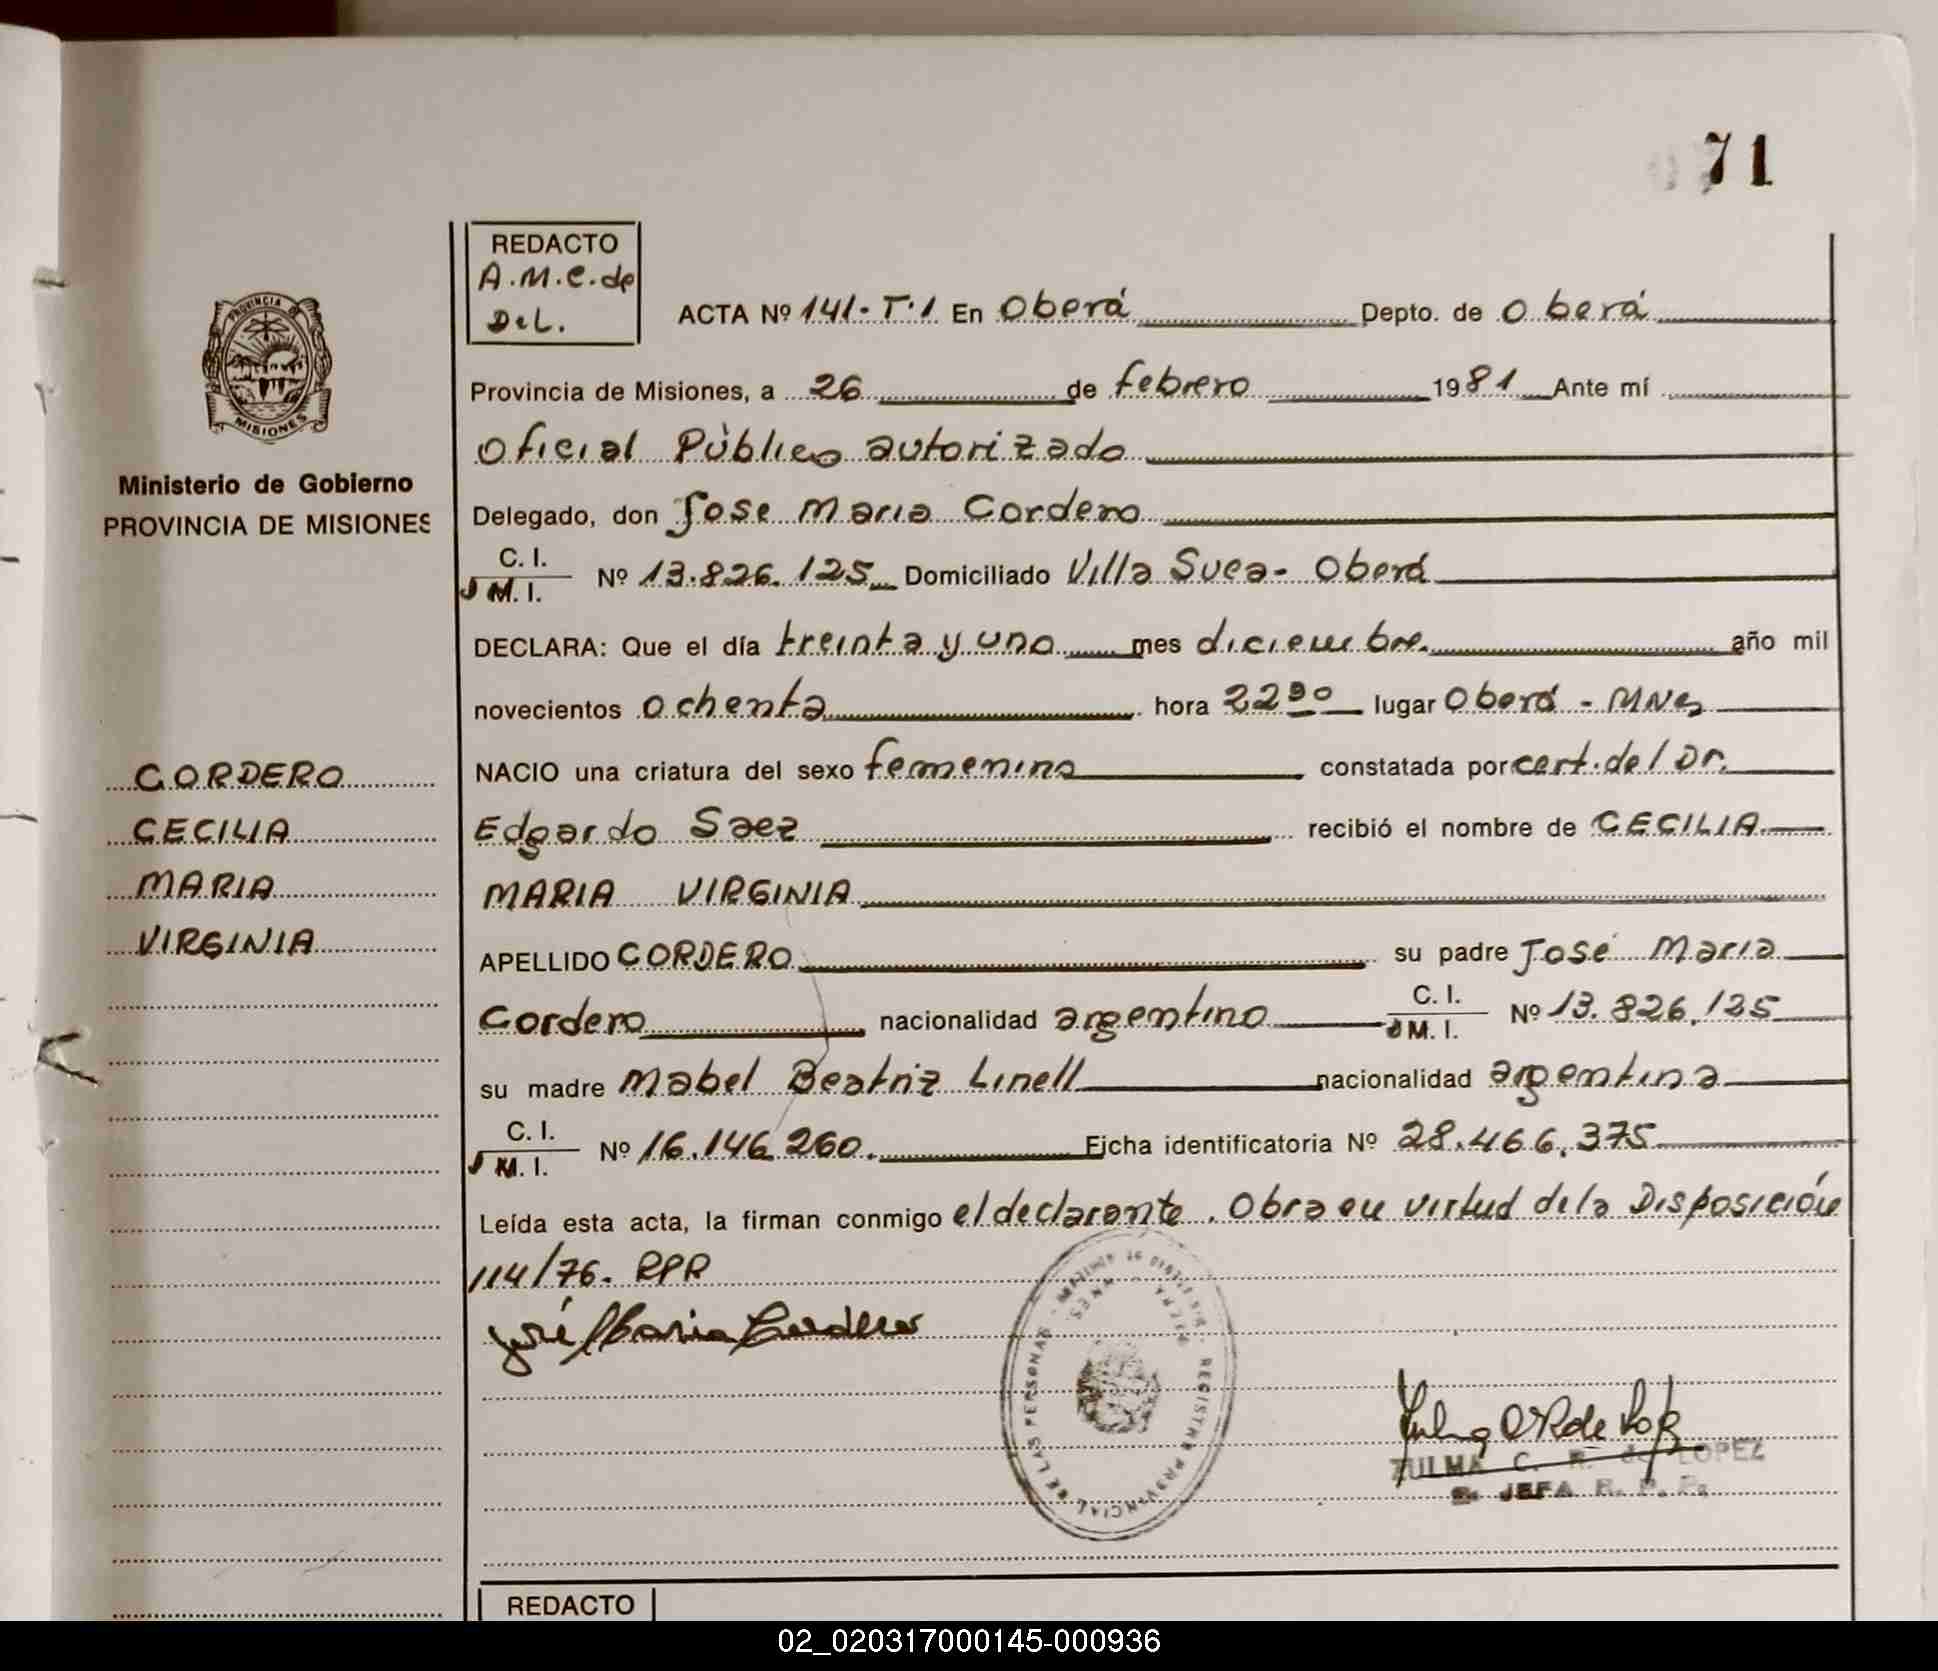 71
REDACTO
A.M.C. de
DeL.
PROVINCIA
MISIONES
Ministerio de Gobierno
PROVINCIA DE MISIONES
ACTA Nº 141-T.1 En Oberá Depto. de Oberá
Provincia de Misiones, a 26 de febrero 1981 Ante mí
Oficial Público autorizado
Delegado, don Jose Maria Cordero
C. I.
M. I. Nº 13.826.125 Domiciliado Villa Svea - Oberá
DECLARA: Que el día treinta y uno mes diciembre año mil
novecientos ochenta hora 22 30 lugar Oberá - MNes
CORDERO
CECILIA
MARIA
VIRGINIA
NACIO una criatura del sexo femenino constatada por cert. del Dr.
Edgardo Saez recibió el nombre de CECILIA
MARIA VIRGINIA
APELLIDO CORDERO su padre José Maria
Cordero nacionalidad argentino C. I. M. I. Nº 13.826.125
su madre Mabel Beatriz Linell nacionalidad argentina
C. I.
M. I. Nº 16.146.260. Ficha identificatoria Nº 28.466.375
Leída esta acta, la firman conmigo el declarante. Obra en virtud de la Disposición
114/76. RPR
José Maria Cordero
REGISTRO PROVINCIAL DE LAS PERSONAS
ZULMA C. R. de LOPEZ
JEFA R. P. P.
REDACTO
02_020317000145-000936